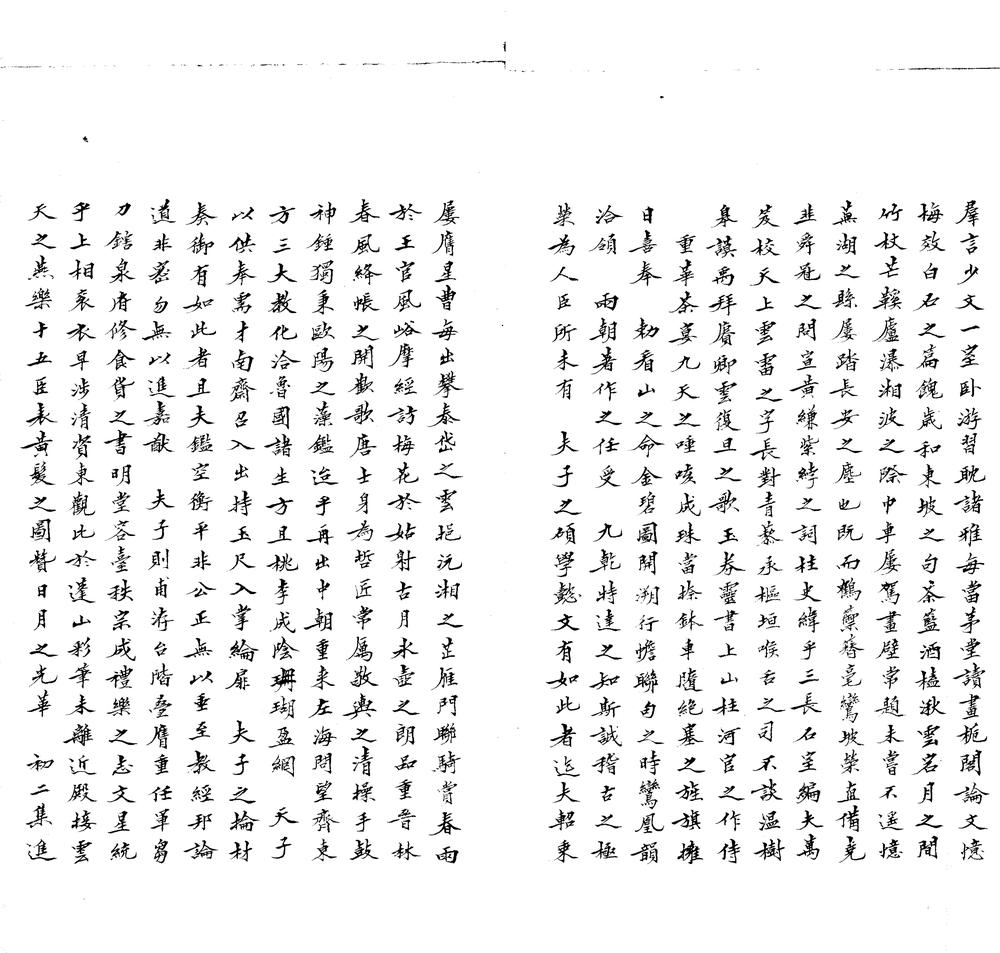 羣言少文一室卧游習耽諸雅每當茅堂讀畫栀閣論文憶
梅效白石之篇餽歲和東坡之句茶籃酒榼湫雲名月之間
竹杖芒鞵廬瀑湘波之際巾車屢駕畫壁常題未嘗不遥憶
蕪湖之縣屢踏長安之塵也既而鶴禀簪毫鸞坡榮直備堯
韭舜𦬆之問宣黄縑紫綍之詞柱史緯乎三長石室編夫萬
笈校天上雲雷之字長對青藜承樞垣喉舌之司不談温樹
臯謨禹拜賡卿雲復旦之歌玉券靈書上山柱河官之作侍
重華茶宴九天之唾咳成珠當捺鉢車隨絶塞之旌旗擁
日喜奉　勅看山之命金碧圖開溯行幨聯句之時鸞凰韻
洽領　兩朝著作之任受　九乾特達之知斯誠稽古之極
榮為人臣所未有　夫子之碩學懿文有如此者迄夫軺車
屢膺星曹每出攀泰岱之雲挹沅湘之芷雁門聯騎嘗春雨
於王官風峪摩經訪梅花於姑射古月氷壺之朗品重晉林
春風絳帳之開歡歌唐士身為哲匠常厲敬輿之清操手鼓
神錘獨秉歐陽之藻鑑迨乎再出中朝重来左海問望齊東
方三大教化洽魯國諸生方且桃李成陰珊瑚盈網　天子
以供奉需才南齋召入出持玉尺入掌綸扉　夫子之掄材
奏御有如此者且夫鑑空衡平非公正無以垂至教經邦論
道非密勿無以進嘉猷　夫子則甫涖台階叠膺重任軍芻
刀錧泉府修食貨之書明堂容臺秩宗成禮樂之志文星統
乎上相衮衣早涉清資東觀比於蓬山彩筆未離近殿接雲
天之燕樂十五臣表黄髮之圖贊日月之光華　初二集進